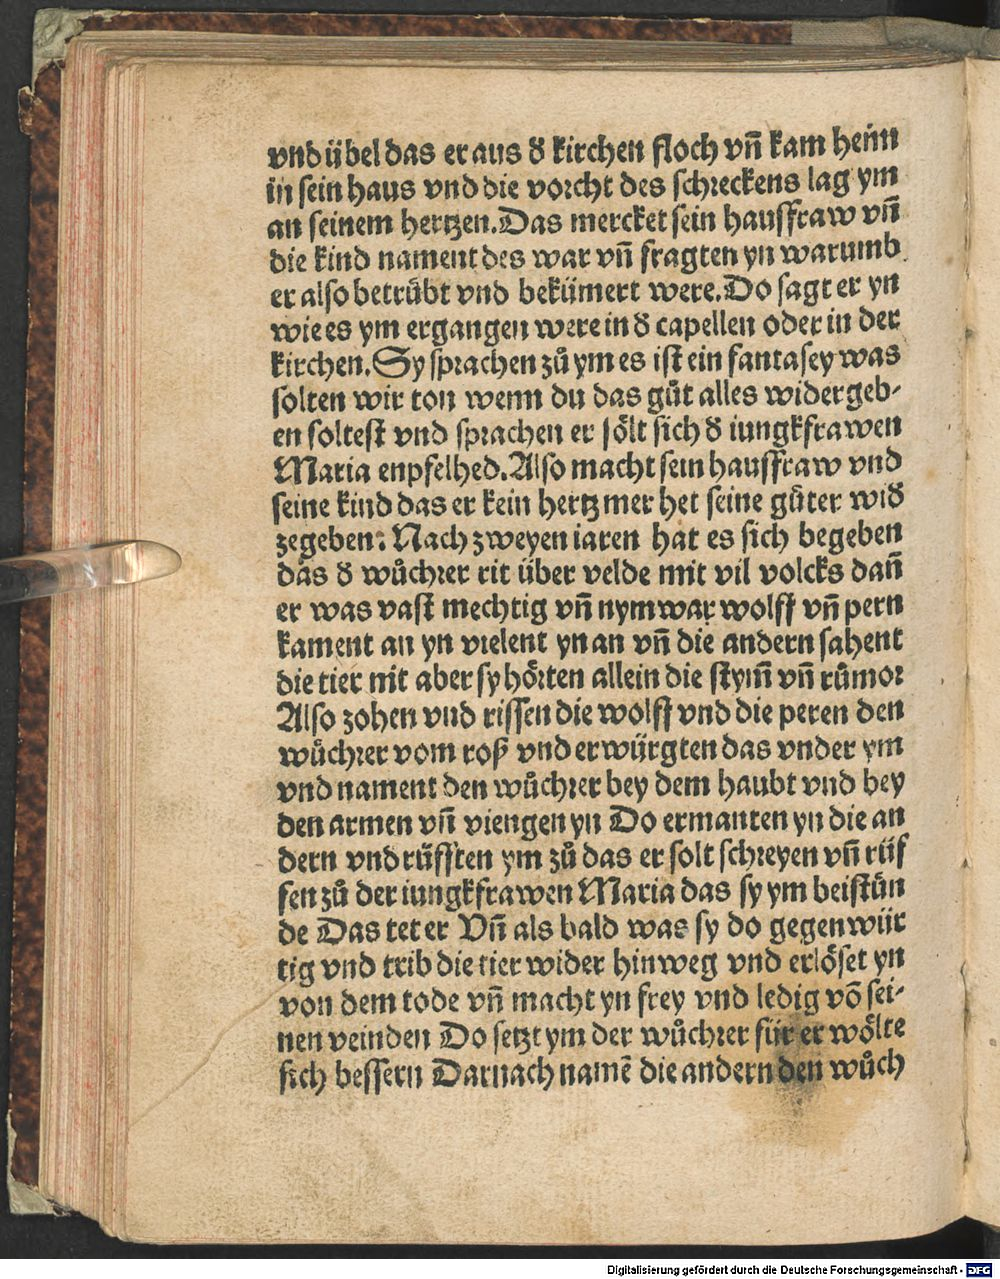 vnd übel das er aus ď kirchen floch vn̄ kam heim
in sein haus vnd die vorcht des schreckens lag ym
an seinem hertzen. Das mercket sein hauffraw vn̄
die kind nament des war vn̄ fragten yn warumb
er also betrübt vnd bekümert were. Do sagt er yn
wie es ym ergangen were in ď capellen oder in der
kirchen. Sy sprachen zů ym es ist ein fantasey was
solten wir ton wenn du das gůt alles widergeb-
en soltest vnd sprachen er sölt sich ď iungkfrawen
Maria enpfelhed. Also macht sein hauffraw vnd
seine kind das er kein hertz mer het seine güter wiď
zegeben. Nach zweyen iaren hat es sich begeben
das ď wůchrer rit über velde mit vil volcks dan̄
er was vast mechtig vn̄ nym war wolff vn̄ pern
kament an yn vielent yn an vn̄ die andern sahent
die tier nit aber sy hörten allein die stym̄ vn̄ růmor
Also zohen vnd rissen die wolff vnd die peren den
wůchrer vom roß vnd erwürgten das vnder ym
vnd nament den wůchrer bey dem haubt vnd bey
den armen vn̄ viengen yn Do ermanten yn die an
dern vnd rüfften ym zů das er solt schreyen vn̄ rüf
fen zů der iungkfrawen Maria das sy ym beistün
de Das tet er Vn̄ als bald was sy do gegenwür
tig vnd trib die tier wider hinweg vnd erlöset yn
von dem tode vn̄ macht yn frey vnd ledig vō sei-
nen veinden Do setzt ym der wůchrer für er wölte
sich bessern Darnach namē die andern den wůch
Digitalisierung gefördert durch die Deutsche Forschungsgemeinschaft - DFG